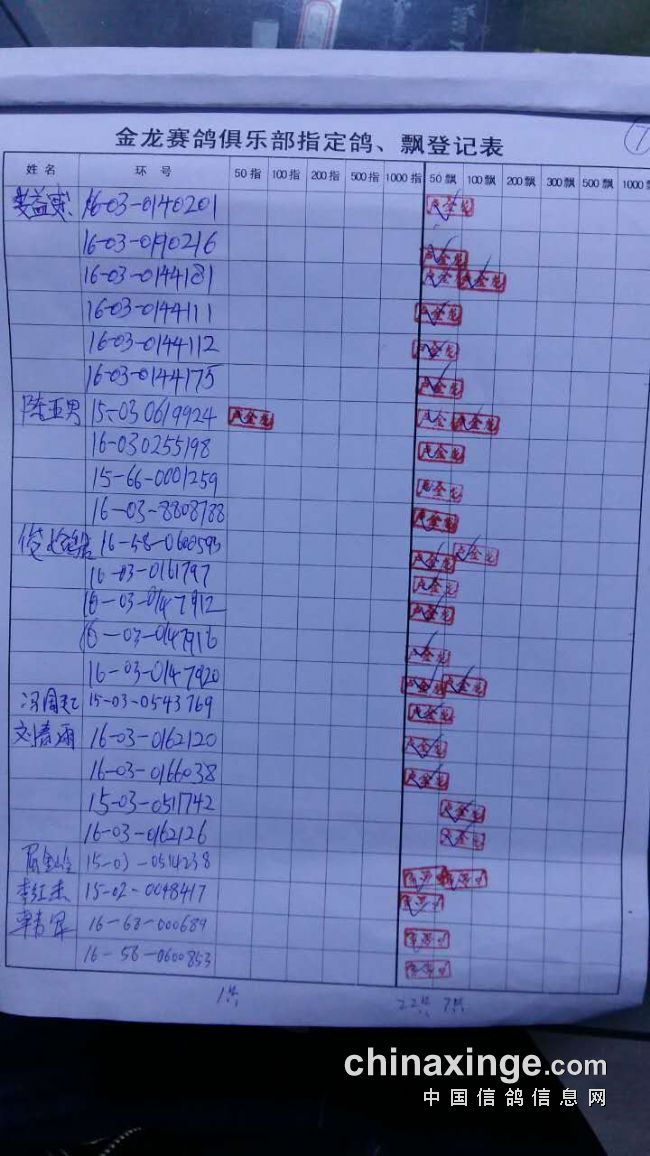 7
金龙赛鸽俱乐部指定鸽、飘登记表
姓名 环号 50指 100指 200指 500指 1000指 50飘 100飘 200飘 300飘 500飘 1000飘
16-03-0140201
16-03-0190216
16-03-0144181
16-03-0144111
16-03-0144112
16-03-0144175
陈亚男 15-03 0619924
16-030255198
15-66-0001259
16-03-8808788
16-58-0600593
16-03-0161797
16-03-0147912
16-03-0147916
16-03-0147920
15-03-0543769
16-03-0162120
16-03-0166038
15-03-0517742
16-03-0162126
15-03-0514238
李红杰 15-02-0098417
16-68-000689
16-56-0600853
1只 22只 7只
chinaxinge.com
中国信鸽信息网